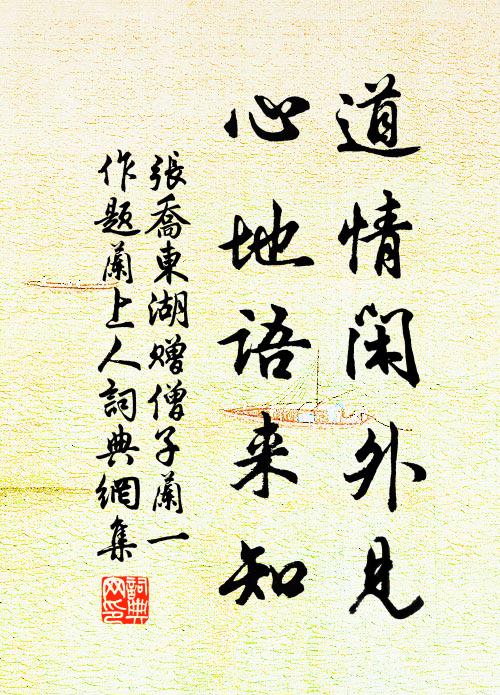 道情閑外見
心地語来知
張喬東湖赠僧子蘭一
作題蘭上人詞典網集
詞典
网印